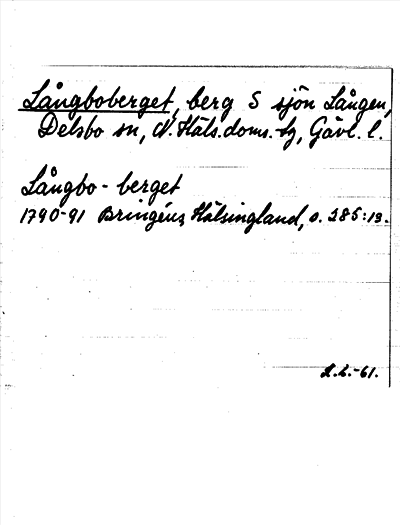 Långboberget, berg S sjön Lången,
Delsbo sn, N. Häls. doms.-tg, Gävl. l.
Långbo-berget
1790-91 Bringéus, Hälsingland, s. 285:13.
L.L.-61.